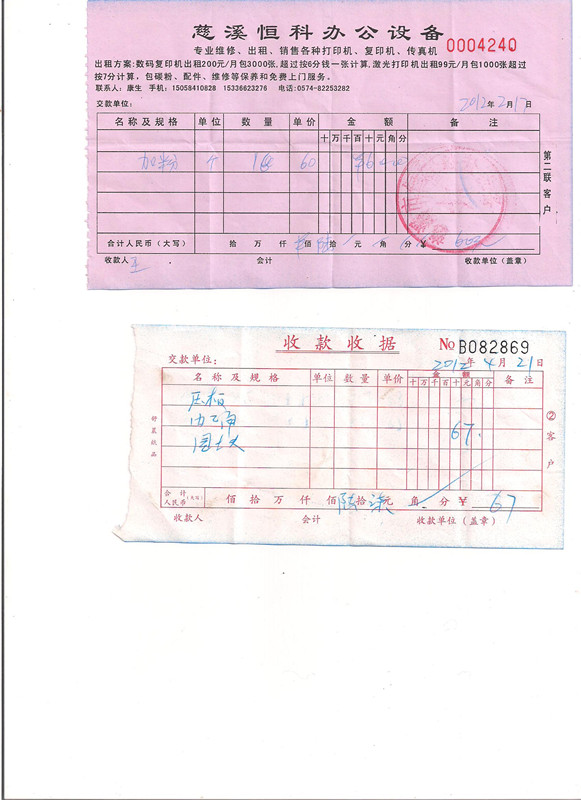 慈溪恒科办公设备
专业维修、出租、销售各种打印机、复印机、传真机
0004240
出租方案:数码复印机出租200元/月包3000张,超过按6分钱一张计算,激光打印机出租99元/月包1000张超过
按7分计算,包碳粉、配件、维修等保养和免费上门服务。
联系人:康生 手机:15058410828 15336623276 电话:0574-82253282
交款单位: 2012年2月17日
名称及规格 单位 数量 单价 金额 备注
十万千百十元角分
加粉 个 1 60 ¥6000
第二联客户
合计人民币(大写) 拾 万 仟 佰 陆拾 元 角 分 ¥
收款人 王 会计 收款单位(盖章)
收款收据
No B082869
交款单位: 2012年4月21日
名称及规格 单位 数量 单价 金额 备注
十万千百十元角分
压板
67.
②客户
合计人民币(大写) 佰拾万仟佰陆拾柒元角分¥ 67
收款人 会计 收款单位(盖章)